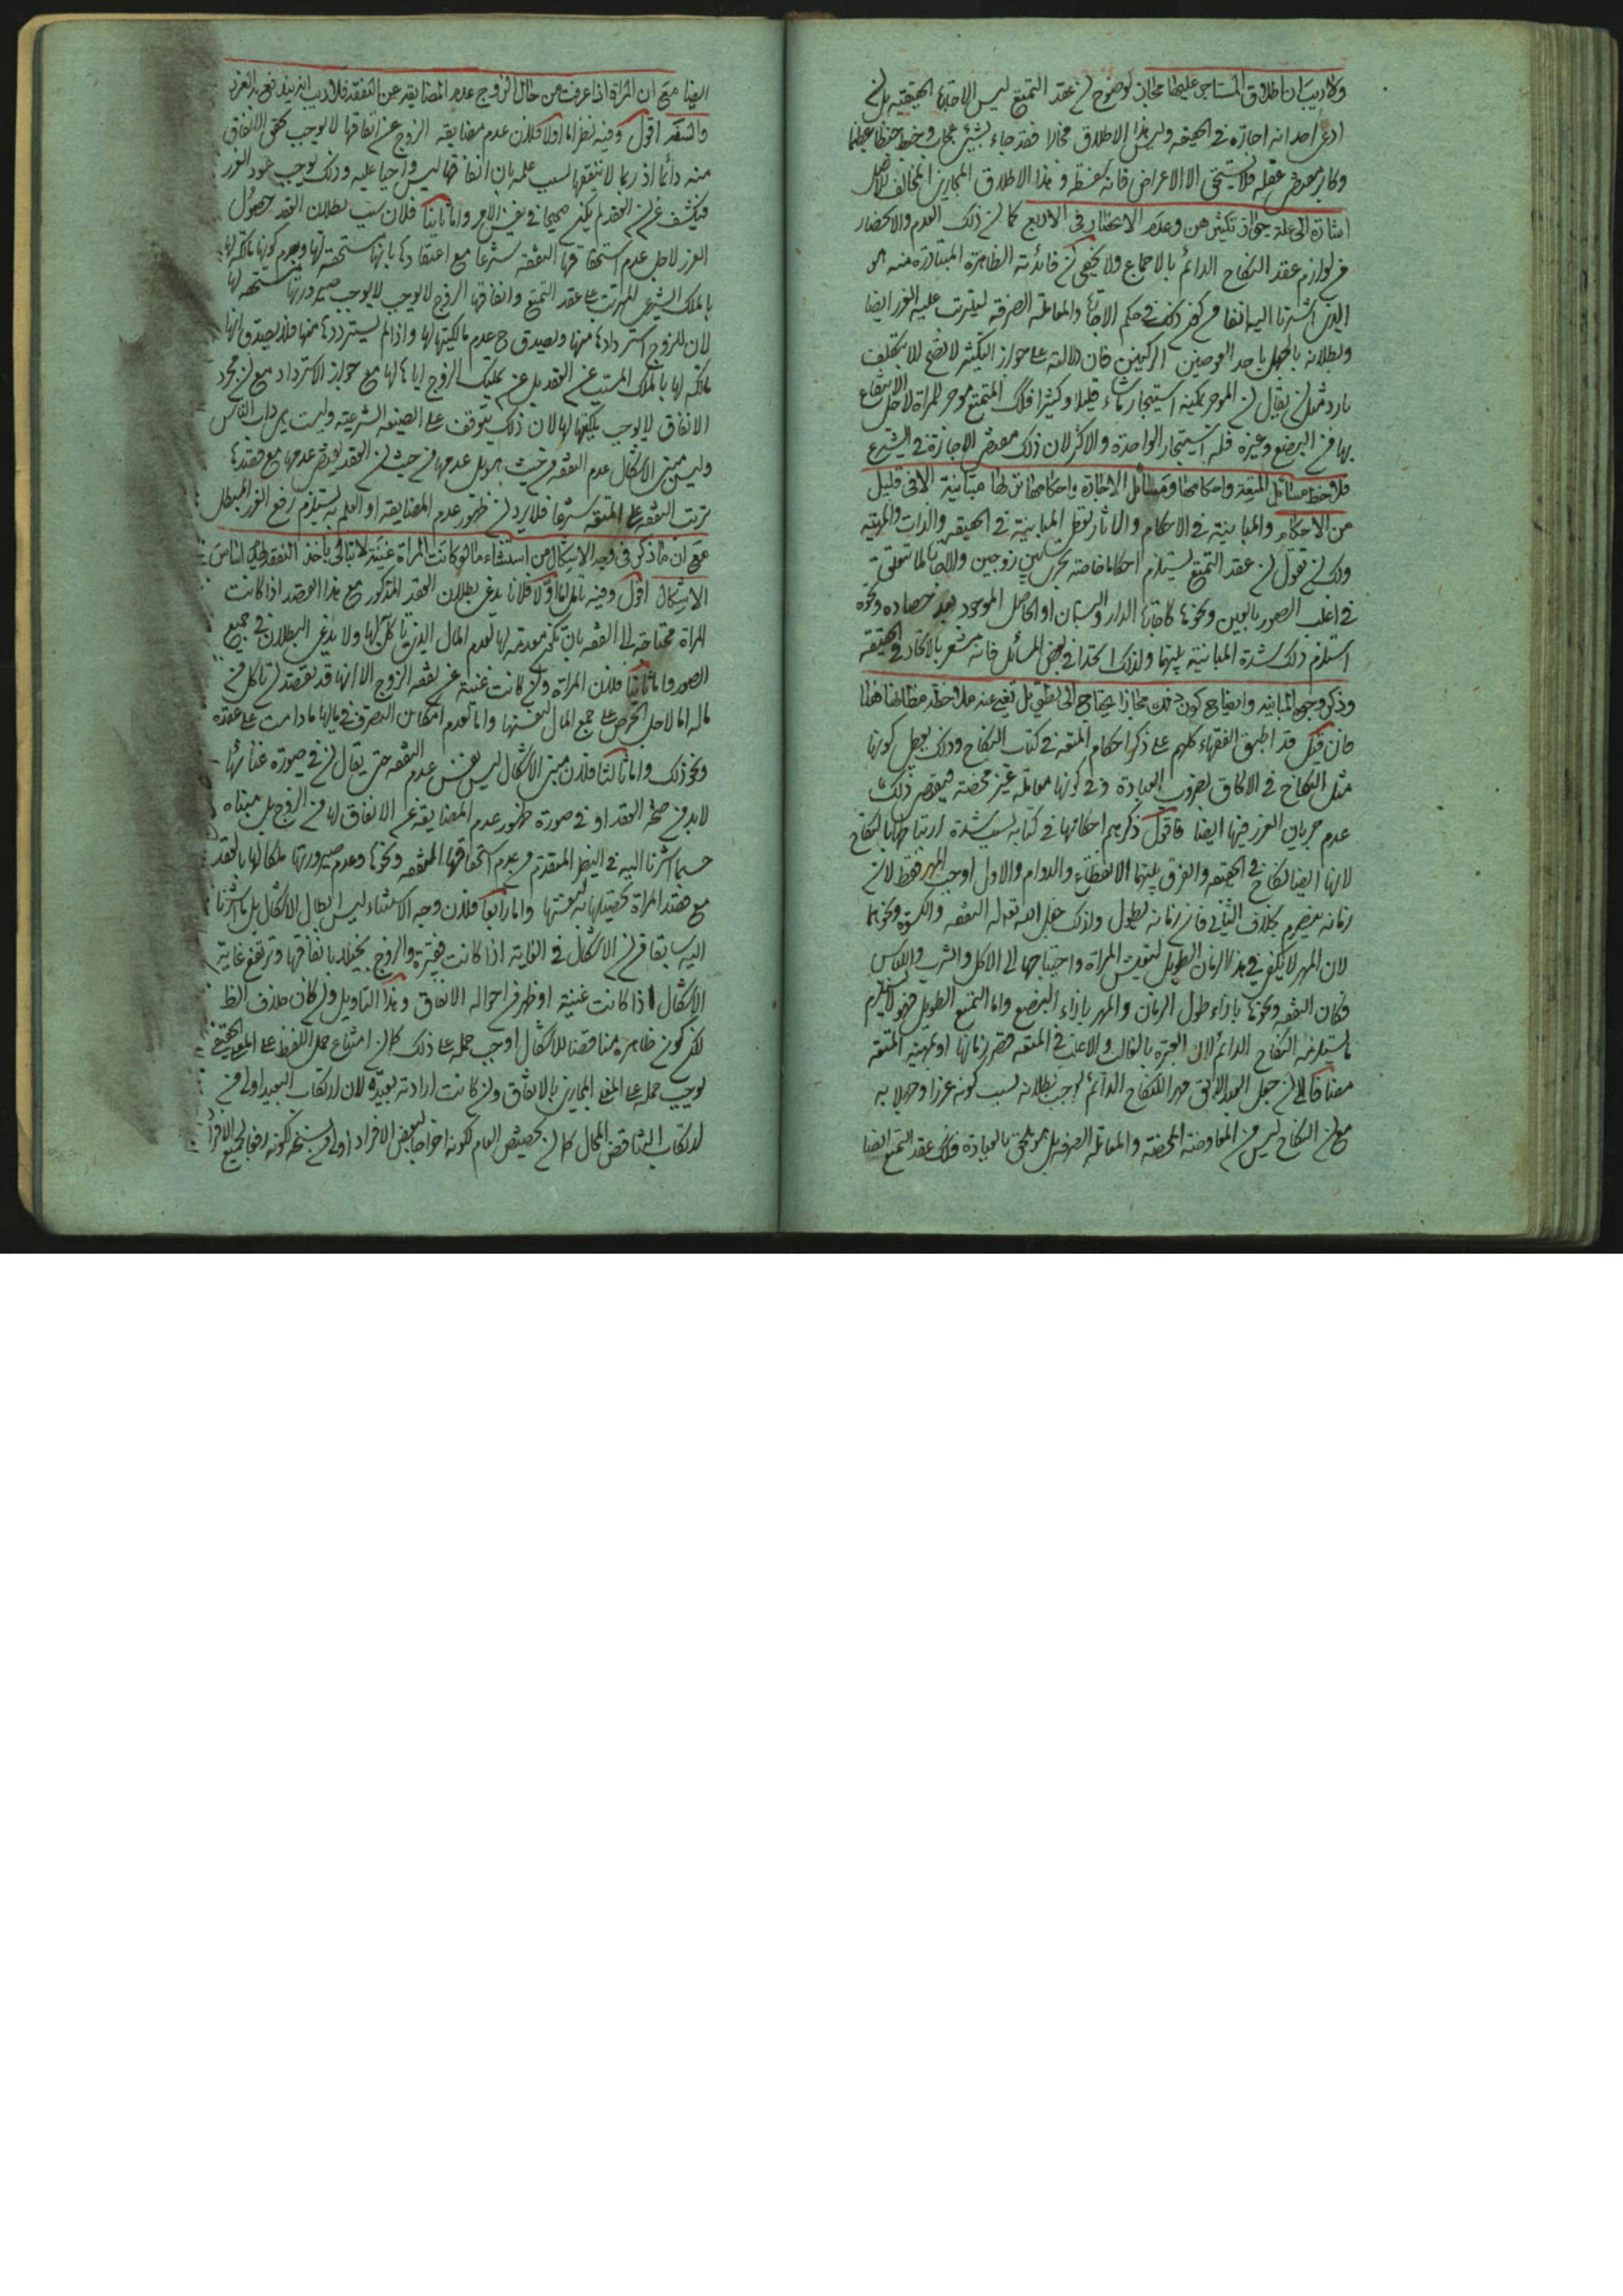 ولا ريب ان اطلاق المستاجر عليها مجاز لوضوح ان عقد التمتع ليس الاجارة الحقيقية بل ان
ادعى احد انه اجارة في الحقيقة وليس هذا الاطلاق مجازا فقد جاء بشيء عجاب وخبط خبطا عظيما
وكابر مقتضى عقله فلا يستحق الا الاعراض فانه وهذا الاطلاق المجازي المخالف للاصل
اشارة الى علة جواز تكثيرهن وعدم الانحصار في الاربع كما ان ذلك العدم والانحصار
من لوازم عقد النكاح الدائم بالاجماع ولا يخفى ان فائدته الظاهرة المتبادرة منه هو
الذي اشرنا اليه انفا من كون ذلك في حكم الاجارة والمعاملة الصرفة ليترتب عليه الغرر ايضا
وبطلانه بالجهل باحد العوضين الركنين فان دلالته على جواز التكثير لا تصح الا بتكلف
بارد مثل ان يقال ان الموجر يمكنه استيجار ما شاء قليلا وكثيرا فكذلك المتمتع موجر للمراة لاجل الانتفاع
بها من البضع وغيره فله استيجار الواحدة والاكثر لان ذلك مقتضى الاجارة في الشرع
فلاحظ مسائل المتعة واحكامها ومسائل الاجارة واحكامها تريها متباينة الا في قليل
من الاحكام والمباينة في الاحكام والاثار تقتضي المباينة في الحقيقة والذات والمرتبة
ولك ان تقول ان عقد التمتع يستلزم احكاما خاصة تجري بين زوجين والاجارة لما تتعلق
في اغلب الصور بالعين ونحوها كاجارة الدار والبستان او الحاصل الموجود بعد حصاده ونحوه
استلزم ذلك شدة المباينة بينهما ولذلك اتحدا في بعض المسائل فانه مشعر بالاتحاد في الحقيقة
وذكر وجوه المباينة وايضاح كون ذلك مجازا يحتاج الى تطويل تغني عنه ملاحظة مظانها هذا
فان قيل قد اطبق الفقهاء كلهم على ذكر احكام المتعة في كتاب النكاح وذلك يجعل كونها
مثل النكاح في الالحاق بضروب العبادة وفي كونها معاملة غير محضة فيقتضي ذلك
عدم جريان الغرر فيها ايضا فاقول ذكرهم احكامها في كتابه بسبب شدة ارتباطها بالنكاح
لانها ايضا نكاح في الحقيقة والفرق بينهما الانقطاع والدوام والاول اوجب المهر فقط لان
زمانه ينصرم بخلاف الثاني فان زمانه يطول ولذلك جعل الله تعالى له النفقة والكسوة ونحوهما
لان المهر لا يكفي في هذا الزمان الطويل لتعيش المراة واحتياجها الى الاكل والشرب واللباس
فكان النفقة ونحوها بازاء طول الزمان والمهر بازاء البضع واما التمتع الطويل فهو لا يستلزم
ما يستلزمه النكاح الدائم لان العبرة بالغالب والاغلب في المتعة قصر زمانها او تمهيته المتعة
مضافا الى ان جعل العبد الابق مهرا للنكاح الدائم يوجب بطلانه بسبب كونه غررا وجهلا به
مع ان النكاح ليس من المعاوضة المحضة والمعاملة الصرفة بل هو ملحق بالعبادة فكذلك عقد التمتع ايضا
ايضا مع ان المراة اذا عرفت من حال الزوج عدم المضايقة عن النفقة فلا ريب انه يندفع به الغرر
وانتهى اقول وفيه نظر اما اولا فلان عدم مضايقة الزوج عن انفاقها لا يوجب تحقق الانفاق
منه دائما اذ ربما لا ينفقها بسبب علمه بان انفاقها ليس واجبا عليه وذلك يوجب عود الغرر
فيكشف عن ان العقد لم يكن صحيحا في نفس الامر واما ثانيا فلان سبب بطلان العقد حصول
الغرر لاجل عدم استحقاقها النفقة شرعا مع اعتقادها بانها مستحقة لها وعدم كونها مالكة لها
بالملك الشرعي المرتب على عقد التمتع وانفاقها الزوج لا يوجب لا يوجب صيرورتها مستحقة لها
لان للزوج استردادها منها ويصدق ح عدم مالكيتها لها واذا لم يستردها منها فلا يصدق انها
مالكة لها بالملك المسبب عن العقد بل عن تمليك الزوج اياها لها مع جواز الاسترداد مع ان مجرد
الانفاق لا يوجب تمليكها لها لان ذلك يتوقف على الصيغة الشرعية وليست من داب الناس
وليس مبنى الاشكال عدم النفقة من حيث هو بل عدمها من حيث ان العقد يقتضي عدمها مع
ترتب النفقة على المتعة شرعا فلا يرد ان ظهور عدم المضايقة او العلم به يستلزم رفع الغرر المبطل
مع ان ما ذكر في وجه الاشكال من استثناء ما لو كانت المراة غنية لا تبالي باخذ النفقة
الاشكال اقول وفيه تامل اما اولا فلانا ندعي بطلان العقد المذكور مع هذا القصد اذا كانت
المراة محتاجة الى النفقة بان تكون معدمة لها لعدم المال الذي تاكل لها ولا ندعي البطلان في جميع
الصور واما ثانيا فلان المراة وان كانت غنية عن نفقة الزوج الا انها قد تقصد ان تاكل من
ماله اما لاجل الحرص على جمع المال لنفسها واما لعدم امكان التصرف في مالها ما دامت على عقده
ونحو ذلك واما ثالثا فلان مبنى الاشكال ليس نفس عدم النفقة حتى يقال ان في صورة غنائها
لا بد من صحة العقد او في صورة ظهور عدم المضايقة عن الانفاق لها من الزوج بل مبناه
حسبما اشرنا اليه في النظر المتقدم من عدم استحقاقها النفقة ونحوها وعدم صيرورتها ملكا لها بالعقد
مع قصد المراة تحصيلها واما رابعا فلان وجه الاستثناء ليس ابطال الاشكال بل ما اشرنا
اليه سابقا من ان الاشكال في الغاية اذا كانت فقيرة والزوج بخيلا بانفاقها وترتفع غاية
الاشكال اذا كانت غنية او ظهر من احواله الانفاق وهذا التاويل وان كان خلاف الظ
لكن كون ظاهره مناقضا للاشكال اوجب حمله على ذلك كما ان امتناع حمل اللفظ على المعنى الحقيقي
يوجب حمله على المعنى المجازي بالاتفاق وان كانت ارادته بعيدة لان ارتكاب البعيد اولى من
ارتكاب التناقض المحال كما ان تخصيص العام لكونه اخراجا لبعض الافراد اولى من نسخه لكونه رفعا لجميع الافراد